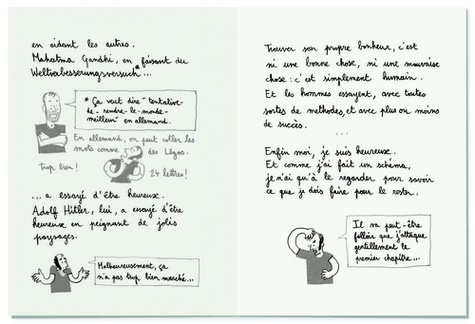 en aidant les autres.
Mahatma Gandhi, en faisant du
Weltverbesserungsversuch*...
* Ça veut dire "tentative-
de-rendre-le-monde-
meilleur" en allemand.
En allemand, on peut coller les
mots comme des Légos.
trop bien!
24 lettres!
... a essayé d'être heureux.
Adolf Hitler, lui, a essayé d'être
heureux en peignant de jolis
paysages.
Malheureusement, ça
n'a pas trop bien marché...
Trouver son propre bonheur, c'est
ni une bonne chose, ni une mauvaise
chose: c'est simplement humain.
Et les hommes essayent, avec toutes
sortes de méthodes, et avec plus ou moins
de succès.
...
Enfin moi, je suis heureux.
Et comme j'ai fait un schéma,
je n'ai qu'à le regarder pour savoir
ce que je dois faire pour le rester.
Il va peut-être
falloir que j'attaque
gentillement le
premier chapitre...